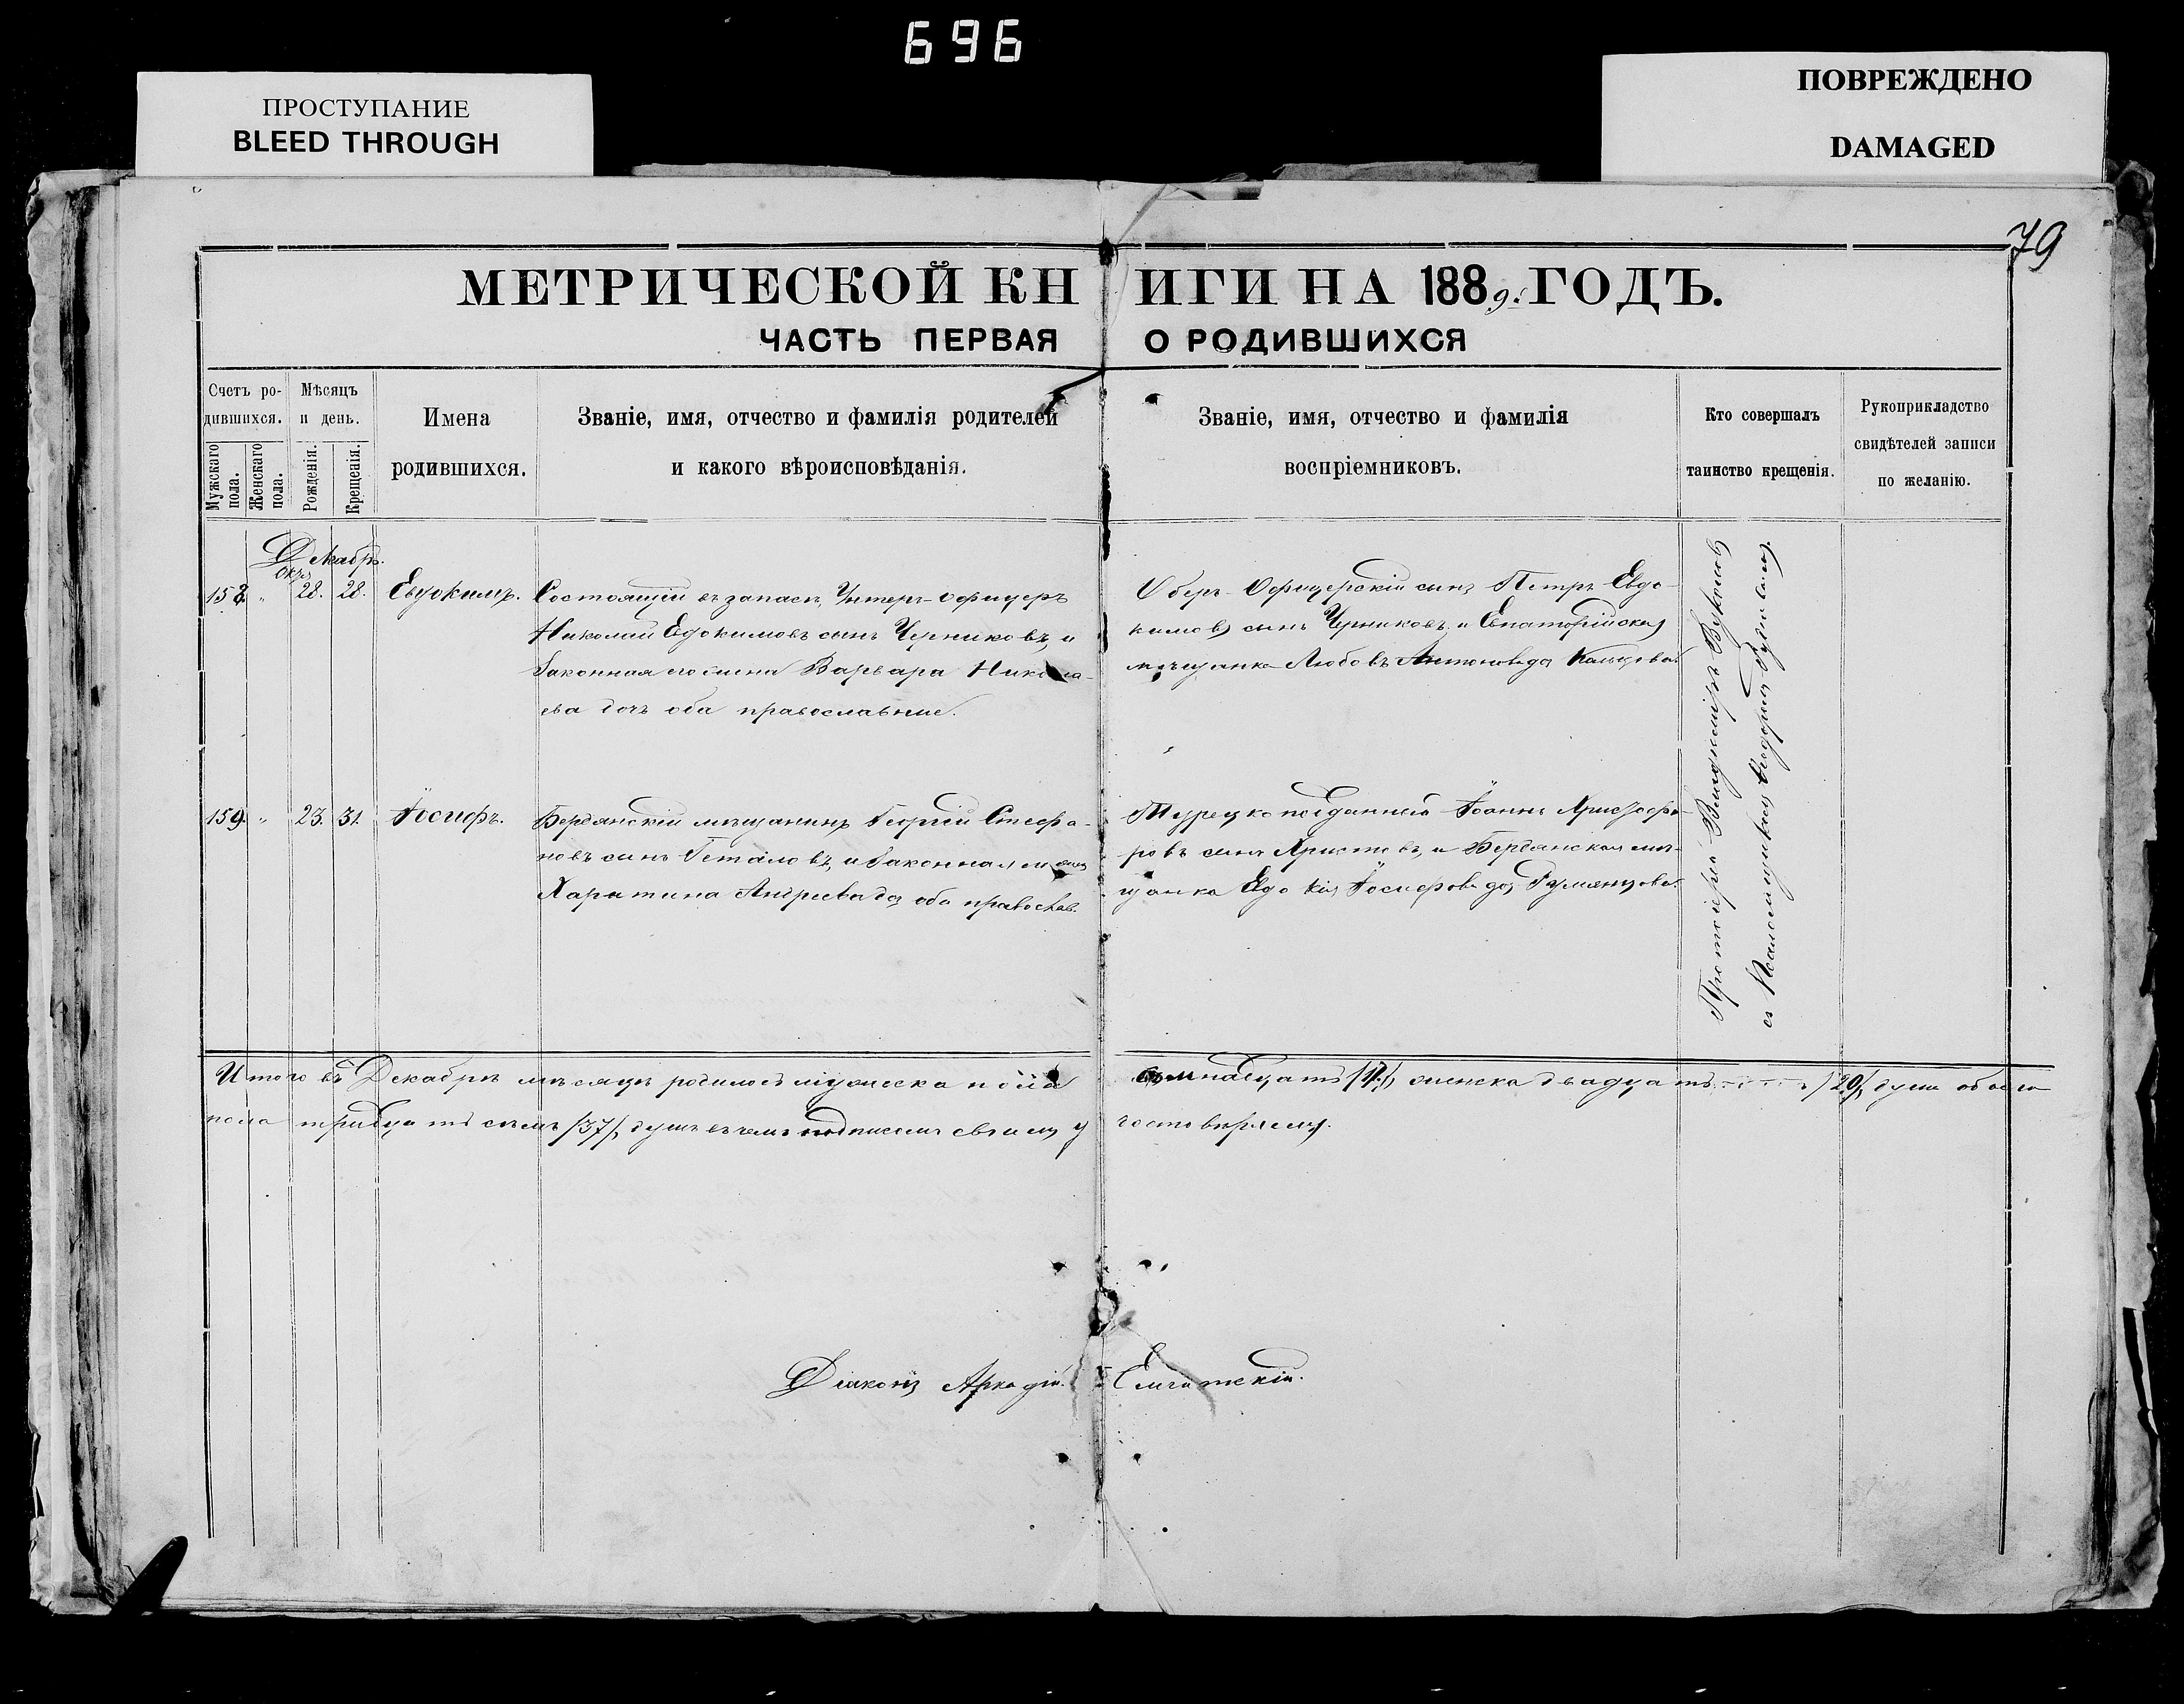 696
ПРОСТУПАНИЕ
BLEED THROUGH
ПОВРЕЖДЕНО
DAMAGED
79
МЕТРИЧЕСКОЙ КНИГИ НА 1889 г. ГОДЪ.
ЧАСТЬ ПЕРВАЯ О РОДИВШИХСЯ
Счетъ ро-
дившихся.
Мужскаго пола.
Женскаго пола.
Мѣсяцъ
и день.
Рожденія.
Крещенія.
Имена
родившихся.
Званіе, имя, отчество и фамилія родителей
и какого вѣроисповѣданія.
Званіе, имя, отчество и фамилія
воспріемниковъ.
Кто совершалъ
таинство крещенія.
Рукоприкладство
свидѣтелей записи
по желанію.
Декабрь.
158. " 28. 28. Евдокимъ.
Состоящій въ запасѣ, Унтеръ-офицеръ
Николай Евдокимовъ сынъ Черниковъ, и
законная его жена Варвара Никола-
ева дочь оба православные.
Оберъ-Офицерскій сынъ Петръ Евдо-
кимовъ сынъ Черниковъ и Евпаторійская
мѣщанка Любовь Антонова до Кальцова.
159. " 23. 31. Іосифъ.
Бердянскій мѣщанинъ Георгій Стефа-
новъ сынъ и законная жена
Харитина Андреева до оба православ.
Турецкоподданный Іоаннъ Христофо-
ровъ сынъ Христовъ, и Бердянская мѣ-
щанка Евдокія Іосифова до Румянцова.
Протоіерей Владиміръ
съ Псаломщикомъ Ѳеодоромъ
Итого въ Декабрѣ мѣсяцѣ родилось мужеска пола семнадцать /17/, женска двадцать /20/, душъ обоего
пола тридцать семь /37/, душъ въ чемъ подписомъ своимъ удостовѣряемъ.
Діаконъ Аркадій